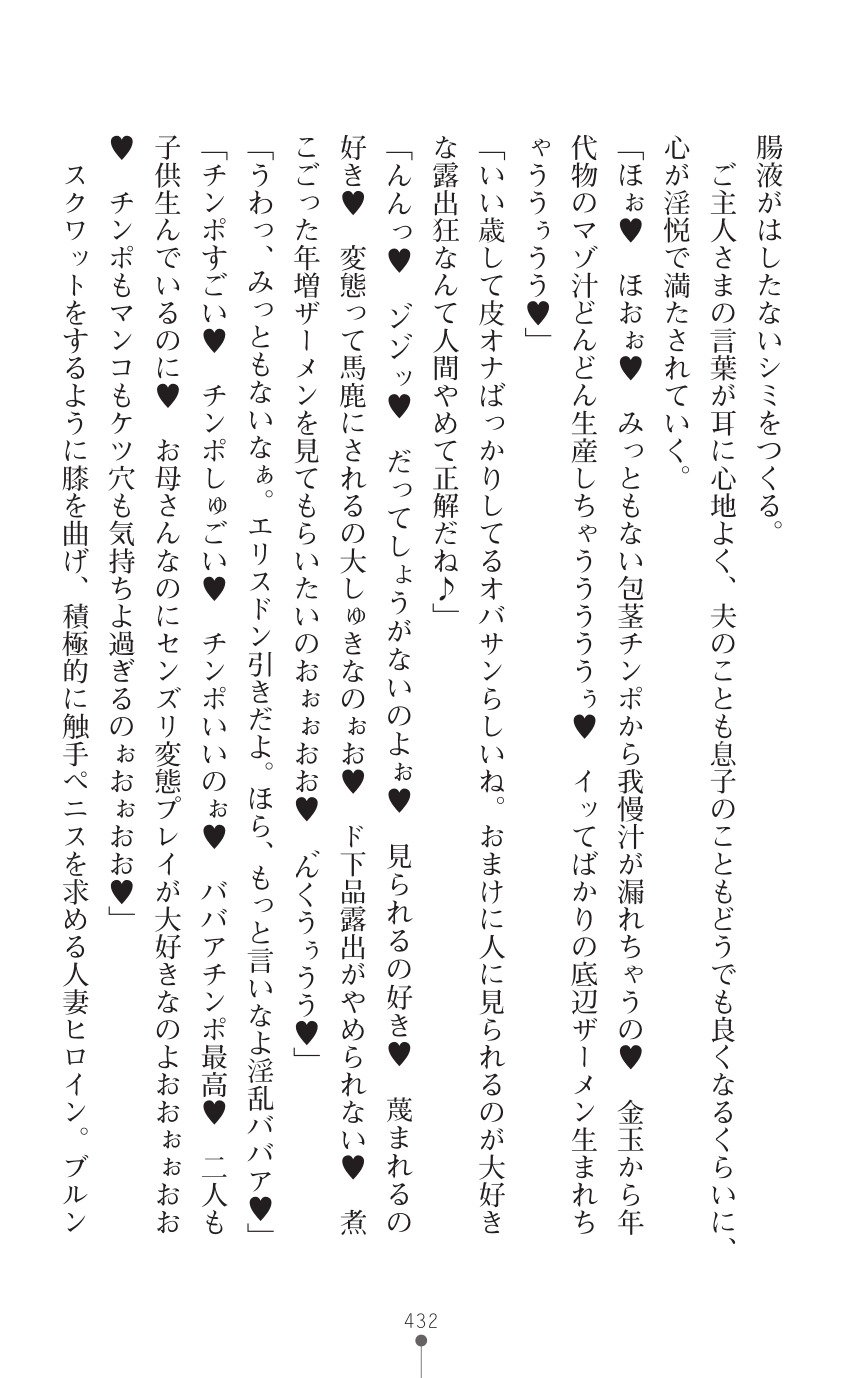 腸液がはしたないシミをつくる。
　ご主人さまの言葉が耳に心地よく、夫のことも息子のこともどうでも良くなるくらいに、
心が淫悦で満たされていく。
「ほぉ♥　ほおぉ♥　みっともない包茎チンポから我慢汁が漏れちゃうの♥　金玉から年
代物のマゾ汁どんどん生産しちゃううううぅ♥　イッてばかりの底辺ザーメン生まれち
ゃううぅうう♥」
「いい歳して皮オナばっかりしてるオバサンらしいね。おまけに人に見られるのが大好き
な露出狂なんて人間やめて正解だね♪」
「んんっ♥　ゾゾッ♥　だってしょうがないのよぉ♥　見られるの好き♥　蔑まれるの
好き♥　変態って馬鹿にされるの大しゅきなのぉお♥　ド下品露出がやめられない♥　煮
こごった年増ザーメンを見てもらいたいのおぉぉおお♥　ん゛くうぅうう♥」
「うわっ、みっともないなぁ。エリスドン引きだよ。ほら、もっと言いなよ淫乱ババア♥」
「チンポすごい♥　チンポしゅごい♥　チンポいいのぉ♥　ババアチンポ最高♥　二人も
子供生んでいるのに♥　お母さんなのにセンズリ変態プレイが大好きなのよおおぉぉおお
♥　チンポもマンコもケツ穴も気持ちよ過ぎるのぉおぉおお♥」
　スクワットをするように膝を曲げ、積極的に触手ペニスを求める人妻ヒロイン。ブルン
432